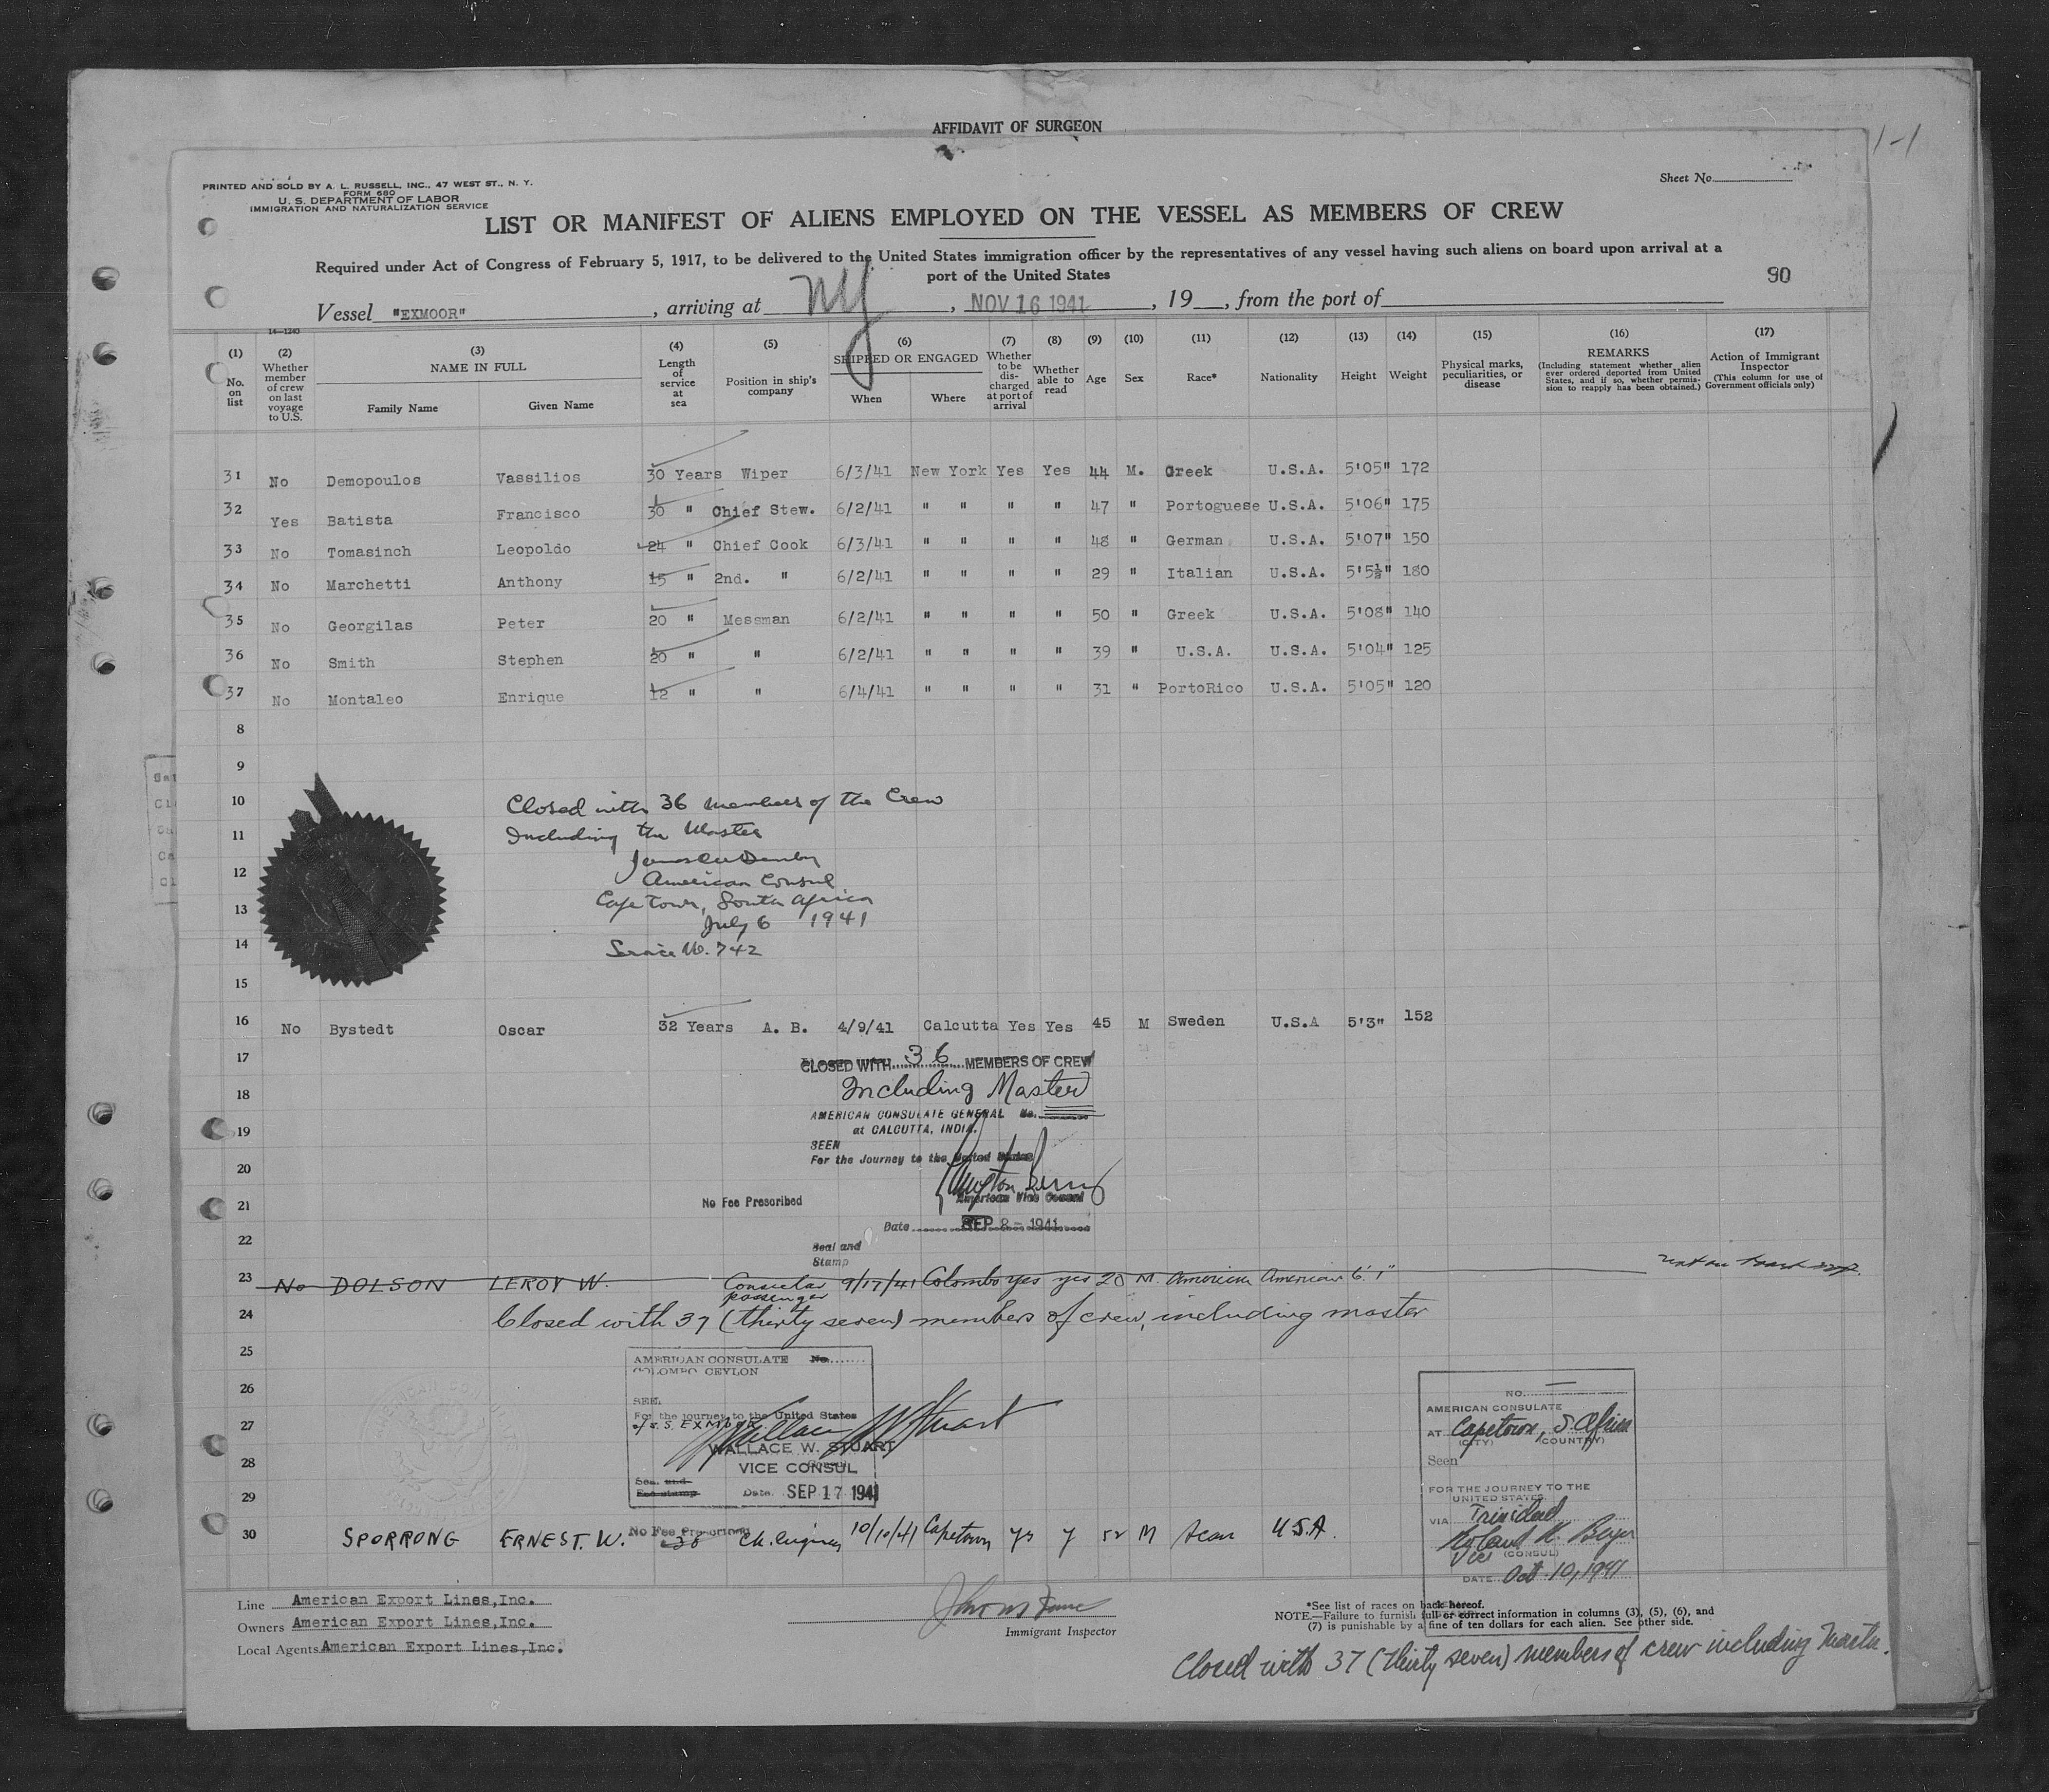 AFFIDAVIT OF SURGEON
1-1
PRINTED AND SOLD BY A. L. RUSSELL, INC., 47 WEST ST., N. Y.
FORM 680
U. S. DEPARTMENT OF LABOR
IMMIGRATION AND NATURALIZATION SERVICE
Sheet No.
LIST OR MANIFEST OF ALIENS EMPLOYED ON THE VESSEL AS MEMBERS OF CREW
Required under Act of Congress of February 5, 1917, to be delivered to the United States immigration officer by the representatives of any vessel having such aliens on board upon arrival at a
port of the United States
90
Vessel "EXMOOR", arriving at NY, NOV 16 1941, 19__, from the port of
14—1240
(1) (2) (3) (4) (5) (6) (7) (8) (9) (10) (11) (12) (13) (14) (15) (16) (17)
No. on list
Whether member of crew on last voyage to U.S.
NAME IN FULL
Family Name Given Name
Length of service at sea
Position in ship's company
SHIPPED OR ENGAGED
When Where
Whether to be discharged at port of arrival
Whether able to read
Age
Sex
Race*
Nationality
Height
Weight
Physical marks, peculiarities, or disease
REMARKS
(Including statement whether alien ever ordered deported from United States, and if so, whether permission to reapply has been obtained.)
Action of Immigrant Inspector
(This column for use of Government officials only)
31 No Demopoulos Vassilios 30 Years Wiper 6/3/41 New York Yes Yes 44 M. Greek U.S.A. 5'05" 172
32 Yes Batista Francisco 30 " Chief Stew. 6/2/41 " " " " 47 " Portoguese U.S.A. 5'06" 175
33 No Tomasinch Leopoldo 24 " Chief Cook 6/3/41 " " " " 48 " German U.S.A. 5'07" 150
34 No Marchetti Anthony 15 " 2nd. " 6/2/41 " " " " 29 " Italian U.S.A. 5'5½" 180
35 No Georgilas Peter 20 " Messman 6/2/41 " " " " 50 " Greek U.S.A. 5'08" 140
36 No Smith Stephen 20 " " 6/2/41 " " " " 39 " U.S.A. U.S.A. 5'04" 125
37 No Montaleo Enrique 12 " " 6/4/41 " " " " 31 " PortoRico U.S.A. 5'05" 120
8
9
10 Closed with 36 members of the Crew
11 Including the Master
12 American Consul
13 Cape Town, South Africa
July 6 1941
14 Service No. 742
15
16 No Bystedt Oscar 32 Years A. B. 4/9/41 Calcutta Yes Yes 45 M Sweden U.S.A 5'3" 152
17 CLOSED WITH 36 MEMBERS OF CREW
18 Including Master
AMERICAN CONSULATE GENERAL No.
19 at CALCUTTA, INDIA.
SEEN
20 For the Journey to the United States
21 No Fee Prescribed American Vice Consul
22 Date SEP 8 - 1941
Seal and
Stamp
23 No DOLSON LEROY W. Consular passenger 9/17/41 Colombo yes yes 20 M. American American 6' 1"
24 Closed with 37 (thirty seven) members of crew, including master
25 AMERICAN CONSULATE No.
COLOMBO CEYLON
26 SEEN
27 For the journey to the United States
of s. S. EXMOOR
Wallace W Stuart
WALLACE W. STUART
28 VICE CONSUL
Seal and
29 Fee stamp Date SEP 17 1941
No Fee Prescribed
30 SPORRONG ERNEST. W. 36 Ch. Engineer 10/10/41 Capetown ys y 52 M Scan U.S.A.
NO.
AMERICAN CONSULATE
AT Capetown, S. Africa
(CITY) (COUNTRY)
Seen
FOR THE JOURNEY TO THE
UNITED STATES
VIA Trinidad
Vice (CONSUL)
DATE Oct. 10, 1941
Line American Export Lines,Inc.
Owners American Export Lines,Inc.
Local Agents American Export Lines,Inc.
Immigrant Inspector
*See list of races on back hereof.
NOTE.—Failure to furnish full or correct information in columns (3), (5), (6), and
(7) is punishable by a fine of ten dollars for each alien. See other side.
Closed with 37 (thirty seven) members of crew including Master.